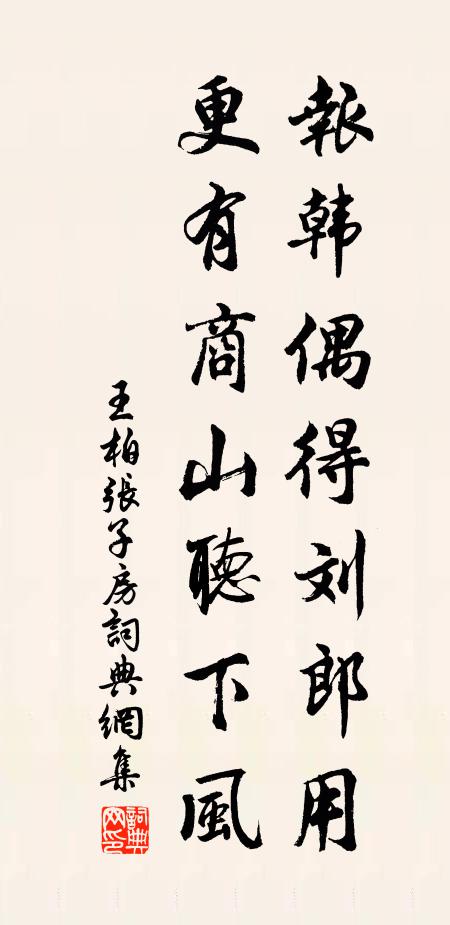 報韩偶得刘郎用
更有商山聽下風
王柏張子房詞典網集
詞典網印